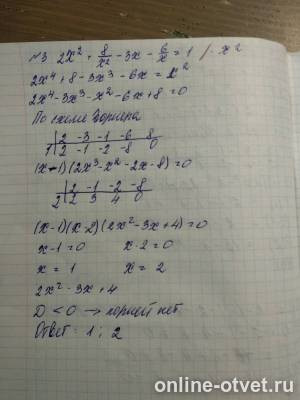 №3 2x² + 8/x² - 3x - 6/x = 1 / · x²
2x⁴ + 8 - 3x³ - 6x = x²
2x⁴ - 3x³ - x² - 6x + 8 = 0
По схеме Горнера
2 -3 -1 -6 8
1 2 -1 -2 -8 0
(x-1)(2x³ - x² - 2x - 8) = 0
2 -1 -2 -8
2 2 3 4 0
(x-1)(x-2)(2x² - 3x + 4) = 0
x-1=0 x-2=0
x = 1 x = 2
2x² - 3x + 4
D < 0 → корней нет
Ответ: 1; 2
online-otvet.ru